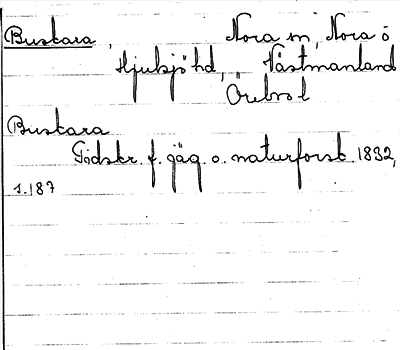 Buskara, Nora sn, Nora ö
Hjulsjö hd, Västmanland
Örebro l
Buskara
Tidskr. f. jäg. o. naturforsk 1832,
s. 187